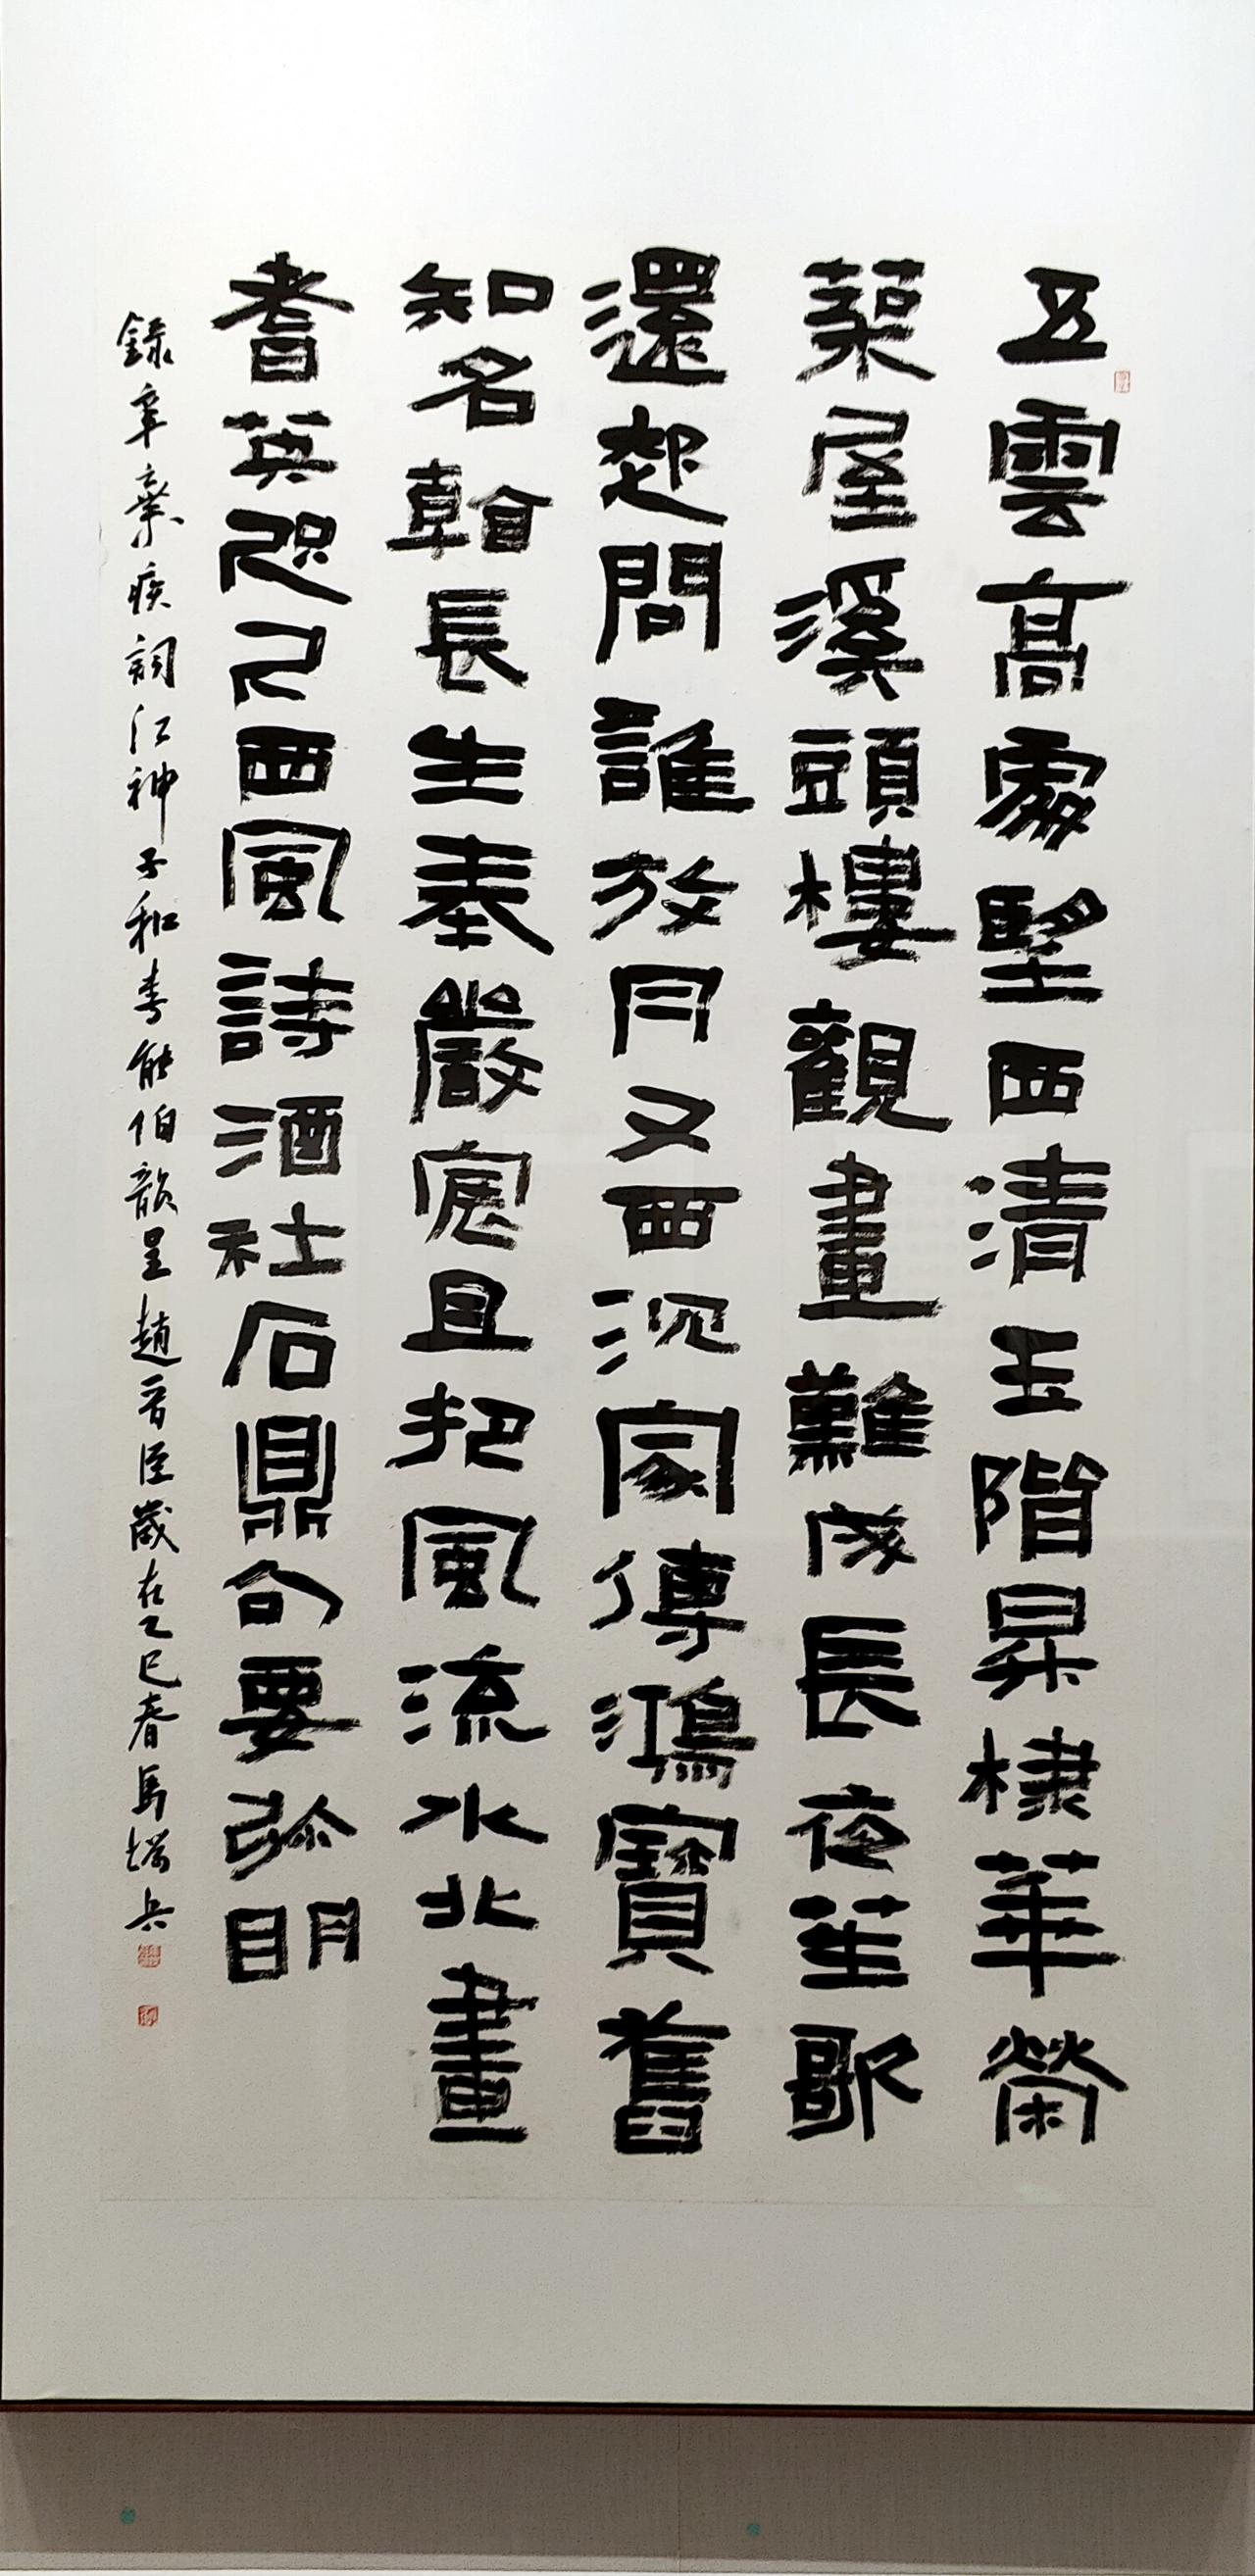 五雲高處望西清玉階昇棣華榮
築屋溪頭樓觀畫難成長夜笙歌
還起問誰放月又西沉家傳鴻寶舊
知名看長生奉嚴宸且把風流水北畫
耆英咫尺西風詩酒社石鼎句要弥眀
錄辛棄疾詞江神子和李能伯韻呈趙晉臣歲在乙巳春馬兵